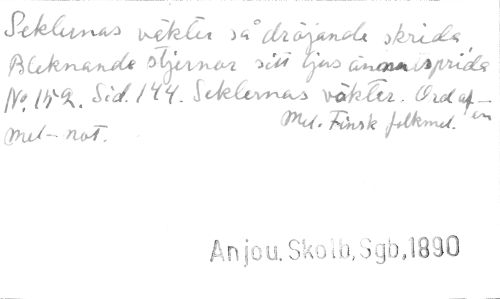 Seklernas väkter så dröjande skrida
Bleknande stjernor sitt ljus ännu sprida
No. 152. Sid. 144. Seklernas väkter. Ord af —
Mel. Finsk folkmel.
mel — not.
Anjou. Skolb, Sgb, 1890